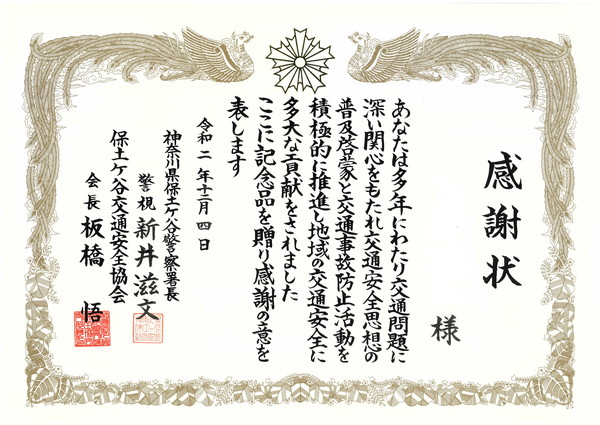 感謝状
様
あなたは多年にわたり交通問題に
深い関心をもたれ交通安全思想の
普及啓蒙と交通事故防止活動を
積極的に推進し地域の交通安全に
多大な貢献をされました
ここに記念品を贈り感謝の意を
表します
令和二年十二月四日
神奈川県保土ケ谷警察署長
警視 新井滋文
保土ケ谷交通安全協会
会長 板橋 悟